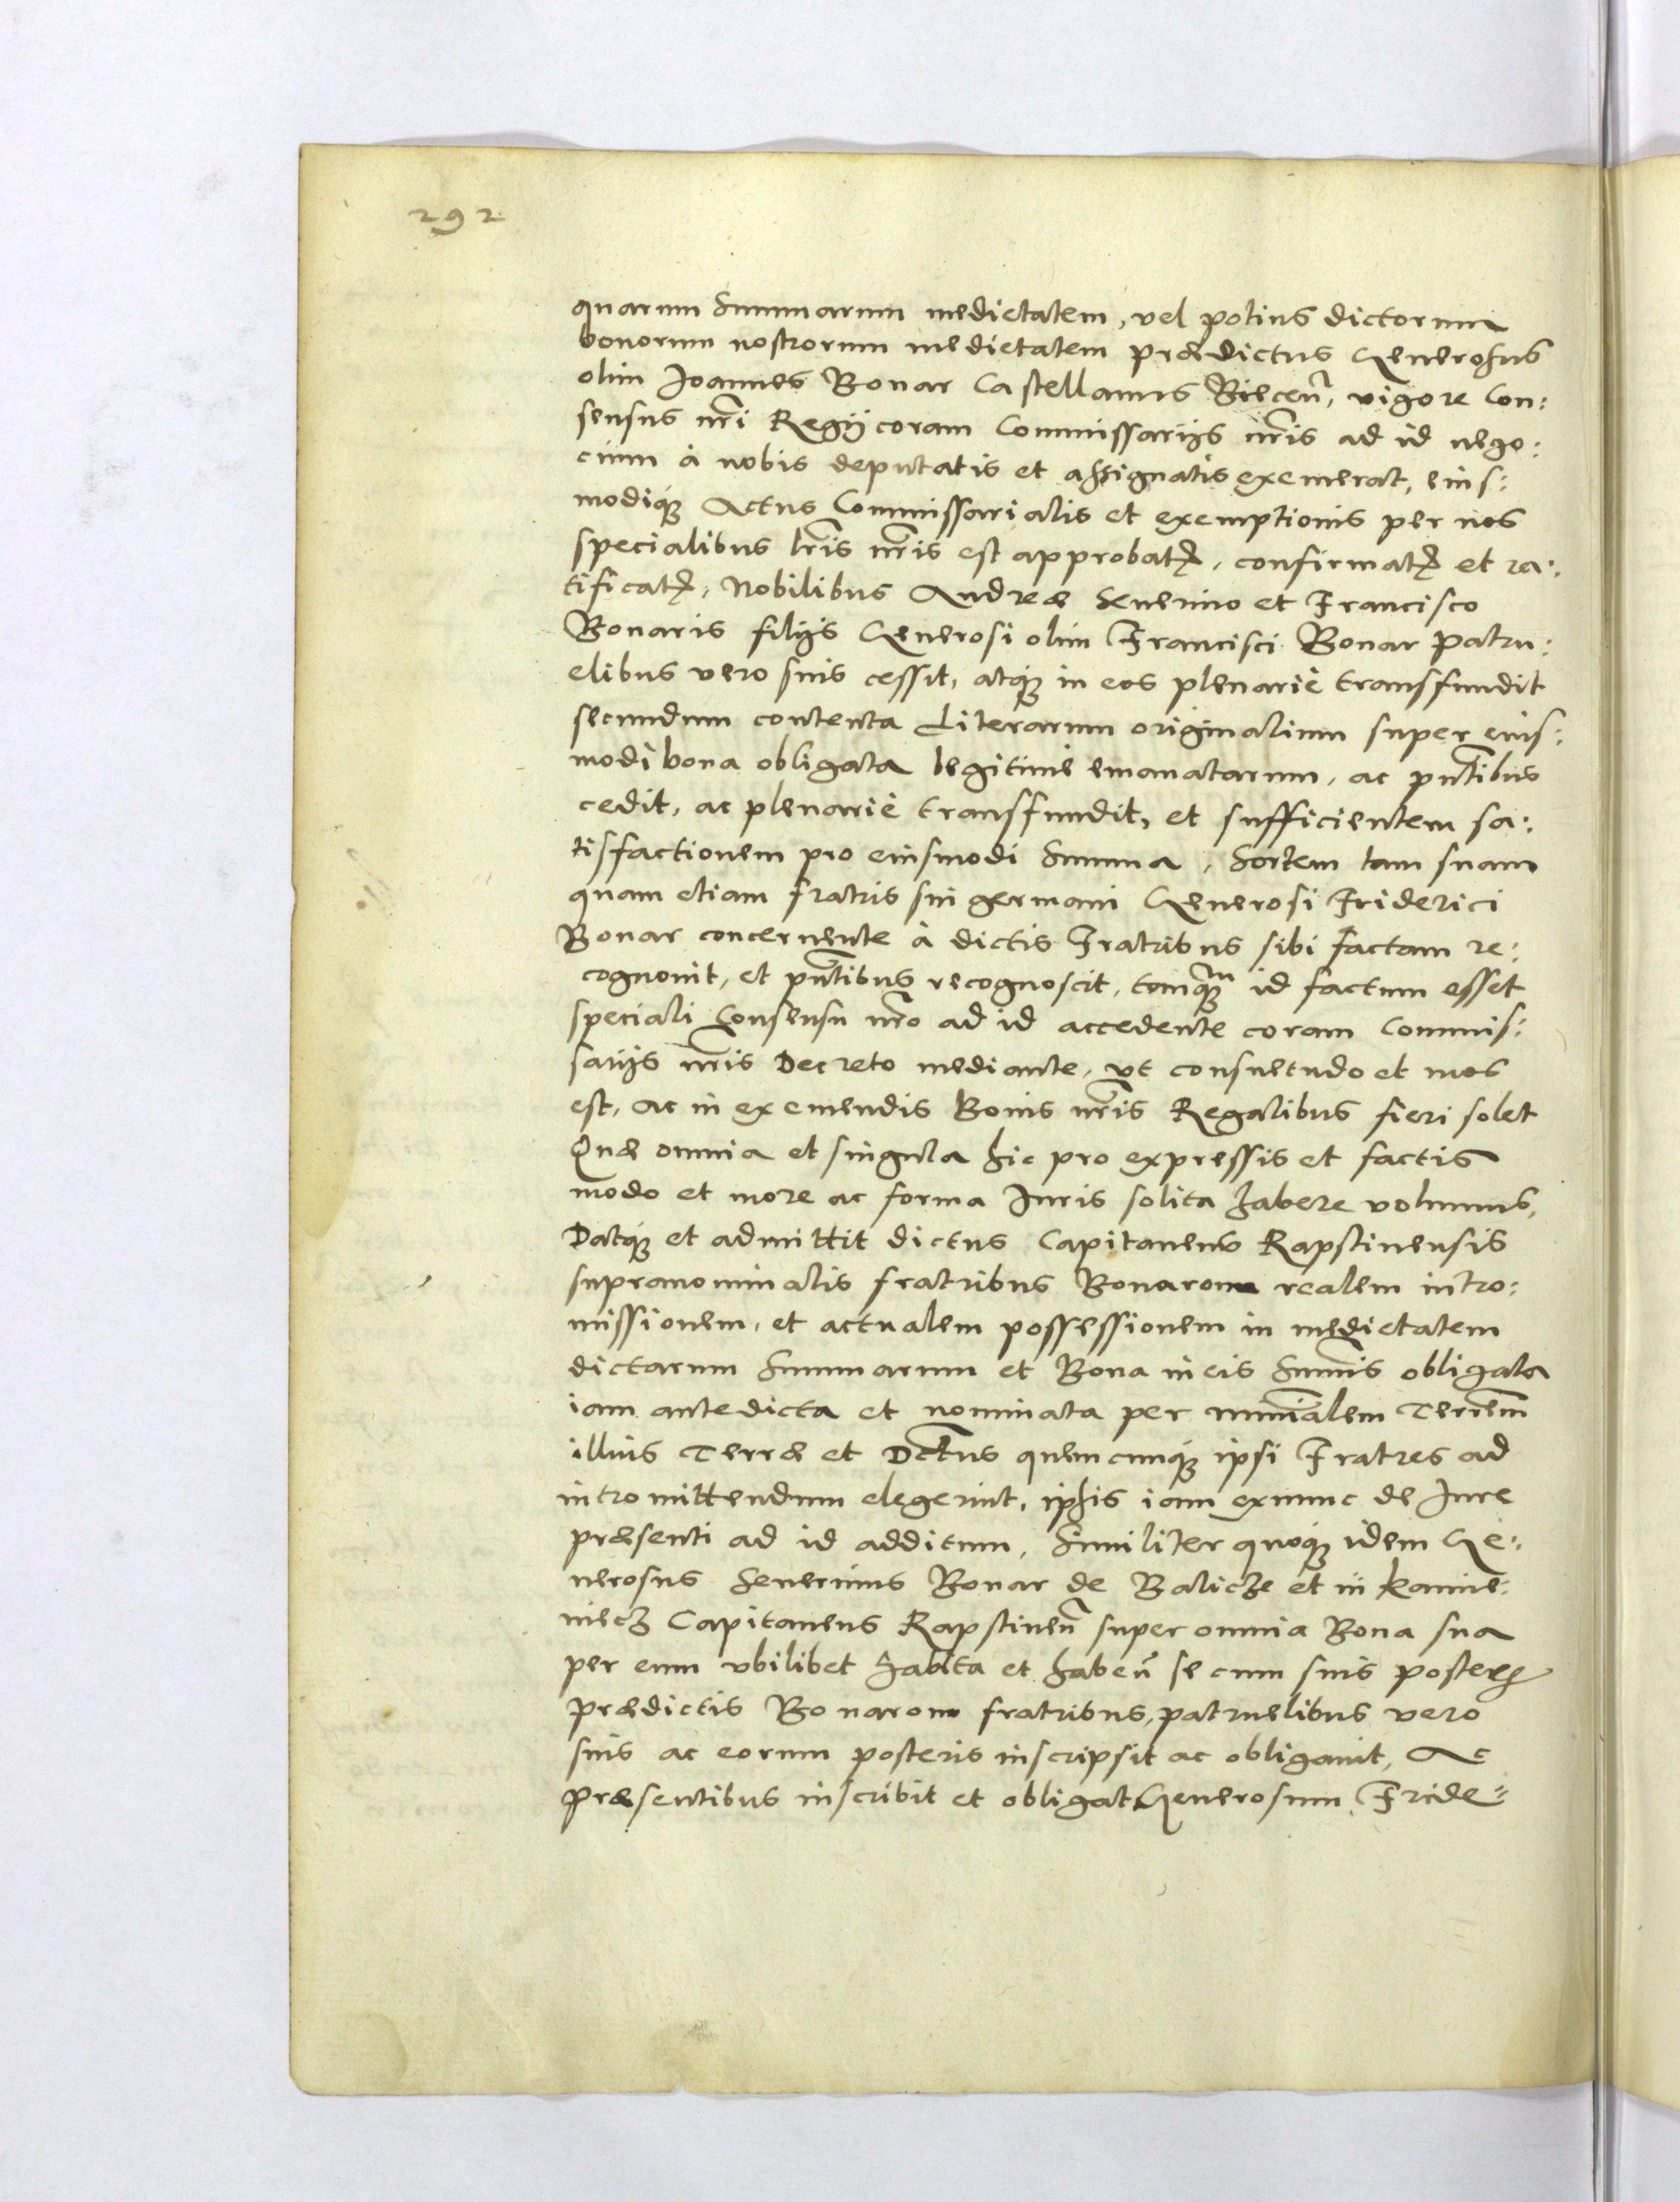 292
quarum Summarum medietatem, vel potius dictorum
bonorum nostrorum medietatem prædictus Generosus
olim Joannes Bonar Castellanus Biecen̄, vigore Con:
sensus nr̄i Regij coram Commissarijs nr̄is ad id nego:
cium à nobis deputatis et assignatis exemerat, eius:
modiqꝫ Actus Commissarialis et exemptionis per nos
specialibus lr̄is nr̄is est approbatꝰ, confirmatꝰ et ra:
tificatꝰ, Nobilibus Andreæ Seuerino et Francisco
Bonaris filijs Generosi olim Francisci Bonar patru:
elibus vero suis cessit, atqꝫ in eos plenariè transfundit
secundum contenta Literarum originalium super eius:
modi bona obligata legitimè emanatarum, ac pn̄tibus
cedit, ac plenariè transfundit, et sufficientem sa:
tisfactionem pro eiusmodi Summa, Sortem tam suam
quam etiam fratris sui germani Generosi Friderici
Bonar concernente à dictis Fratribus sibi factam re:
cognouit, et pn̄tibus recognoscit, tanqꝫm id factum esset
speciali Consensu nr̄o ad id accedente coram Commis:
sarijs nr̄is Decreto mediante, vt consuetudo et mos
est, ac in exemendis Bonis nr̄is Regalibus fieri solet
Quæ omnia et singula hic pro expressis et factis
modo et more ac forma Iuris solita habere volumus,
Datqꝫ et admittit dictus Capitaneus Rapstinensis
supranominatis fratribus Bonarom realem intro:
missionem, et actualem possessionem in medietatem
dictarum Summarum et Bona in eis Summis obligata
iam antedicta et nominata per mīnīalem Terrēm
illius Terræ et Dctūs quemcunqꝫ ipsi Fratres ad
intromittendum elegerint, ipsis iam exnunc de Iure
præsenti ad id additum, Similiter quoqꝫ idem Ge:
nerosus Seuerinus Bonar de Balicze et in Kamie:
niecz Capitaneus Rapstinen̄ super omnia Bona sua
per eum vbilibet habita et haben̄ se cum suis posteris
prædictis Bonarom fratribus, patruelibus vero
suis ac eorum posteris inscripsit ac obligauit, Ac
præsentibus inscribit et obligat Generosum Fride=